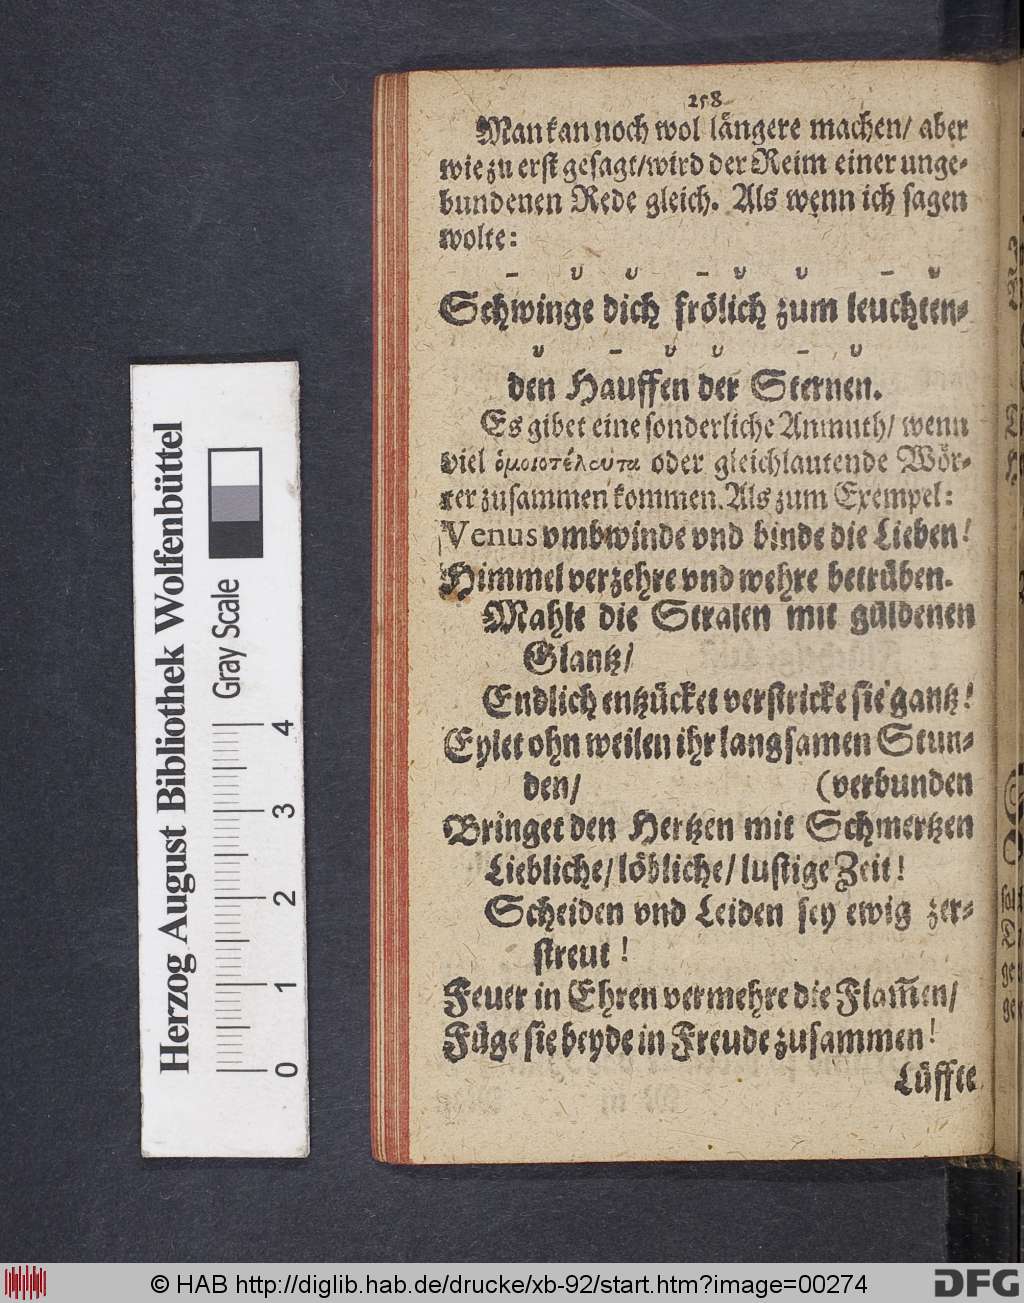 258
Man kan noch wol längere machen/ aber
wie zu erst gesagt/ wird der Reim einer unge-
bundenen Rede gleich. Als wenn ich sagen
wolte:
– υ υ – υ υ – υ
Schwinge dich frölich zum leuchten-
υ – υ υ – υ
den Hauffen der Sternen.
Es gibet eine sonderliche Anmuth/ wenn
viel ὁμοιοτέλευτα oder gleichlautende Wör-
ter zusammen kommen. Als zum Exempel:
Venus vmbwinde vnd binde die Lieben!
Himmel verzehre vnd wehre betrüben.
Mahle die Stralen mit güldenen
Glantz/
Endlich entzücket verstricke sie gantz!
Eylet ohn weilen ihr langsamen Stun-
den/ (verbunden
Bringet den Hertzen mit Schmertzen
Liebliche/ löbliche/ lustige Zeit!
Scheiden vnd Leiden sey ewig zer-
streut!
Feuer in Ehren vermehre die Flam̃en/
Füge sie beyde in Freude zusammen!
Lüffte
Herzog August Bibliothek Wolfenbüttel
Gray Scale
0 1 2 3 4
© HAB http://diglib.hab.de/drucke/xb-92/start.htm?image=00274
DFG